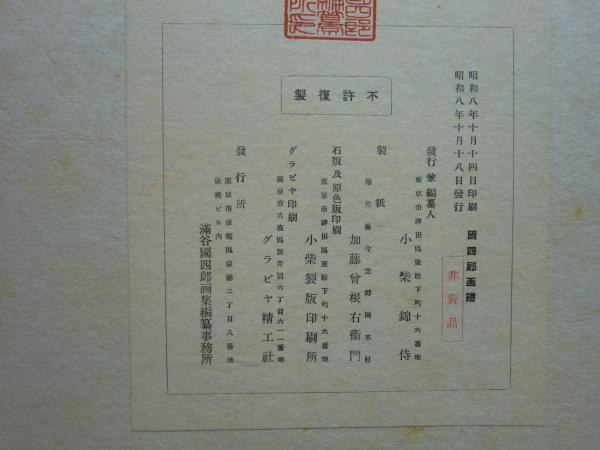 昭和八年十月十四日印刷
昭和八年十月十八日發行
國四郎画譜
非賣品
不許復製
發行兼編纂人
東京市神田區東松下町十六番地
小柴錦侍
製紙
福井縣今立郡岡本村
加藤曾根右衞門
石版及原色版印刷
東京市神田區東松下町十六番地
小柴製版印刷所
グラビヤ印刷
東京市大森區新井宿六丁目六一一番地
グラビヤ精工社
發行所
東京市京橋區京橋二丁目八番地
京橋ビル内
滿谷國四郎画集編纂事務所